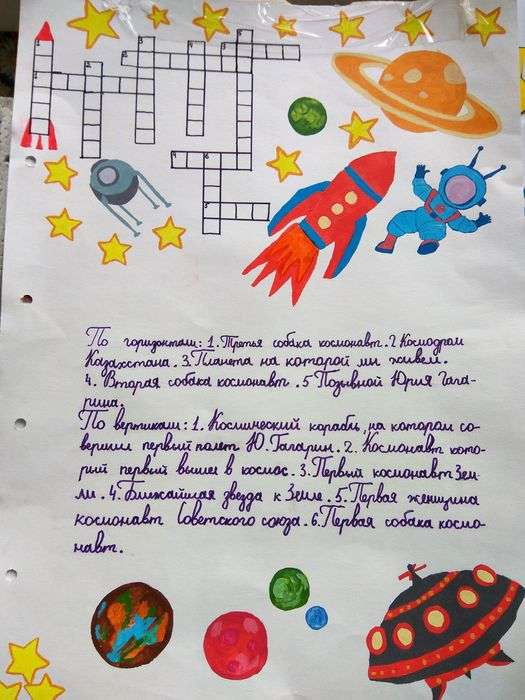 По горизонтали: 1. Третья собака космонавт. 2 Космодром
Казахстана. 3. Планета на которой ми живем.
4. Вторая собака космонавт. 5 Позывной Юрия Гага-
рина.
По вертикали: 1. Космический корабль, на котором со-
вершил первый полет Ю. Гагарин. 2. Космонавт кото-
рый первый вышел в космос. 3. Первый космонавт Зем-
ли. 4. Ближайшая звезда к Земле. 5. Первая женщина
космонавт Советского союза. 6. Первая собака космо-
навт.